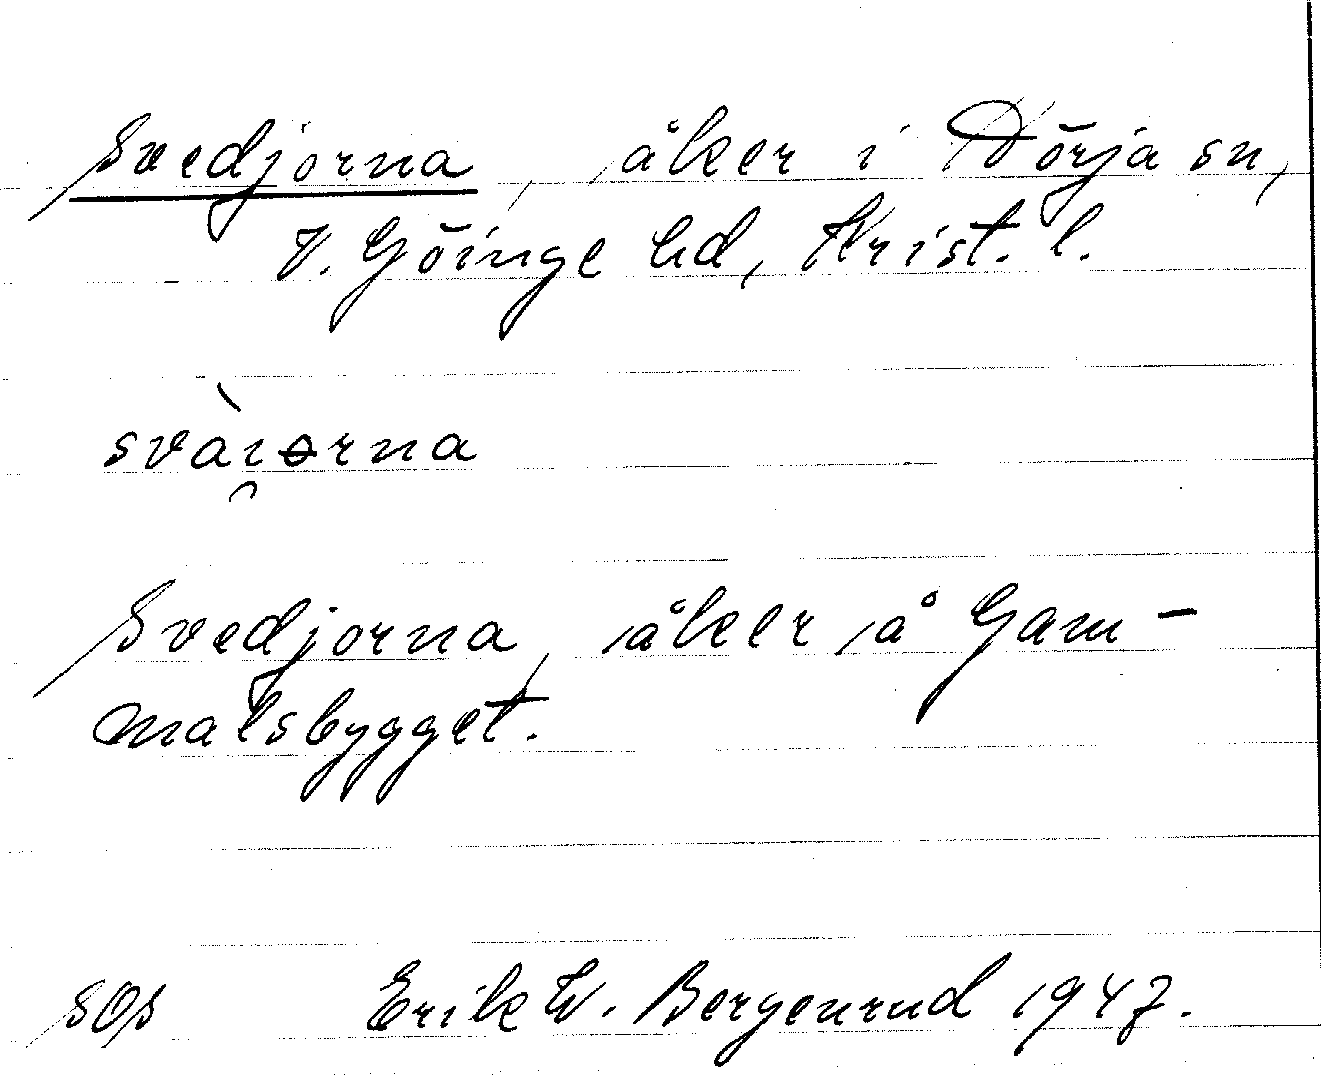 Svedjorna, åker i Nörja sn,
V. Göinge hd, Krist. l.
svài̯ɵrna
Svedjorna, åker å Gam-
malsbygget.
SOS Erik W. Bergenrud 1947.